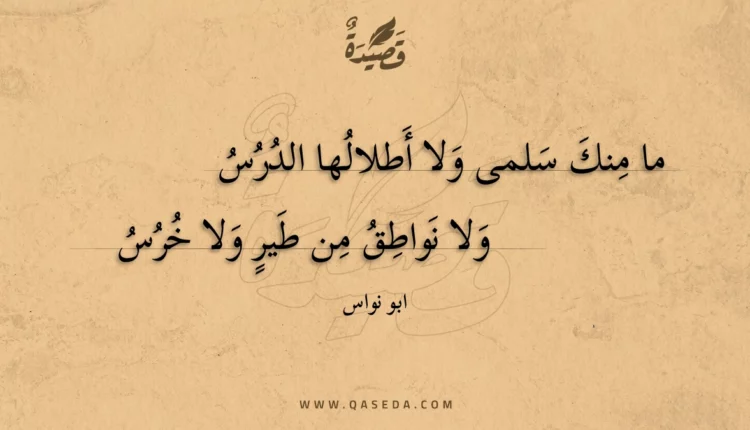 قَصِيْدَةٌ
ما مِنكَ سَلمى وَلا أَطلالُها الدُرُسُ
وَلا نَواطِقُ مِن طَيرٍ وَلا خُرُسُ
ابو نواس
WWW.QASEDA.COM